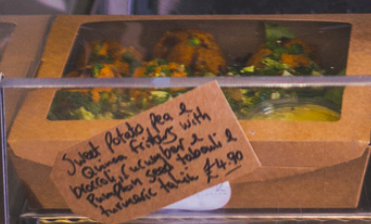 Sweet Potato Pea &
Quinoa fritters with
broccoli, cucumber &
Pumpkin seed tabouli &
turmeric tahini £4.90